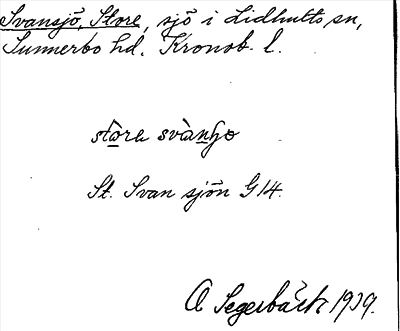 Svansjö, Store, sjö i Lidhults sn,
Sunnerbo hd. Kronob. l.
stora svànʃɷ
St. Svan sjön G14.
A Segerbäck 1939.